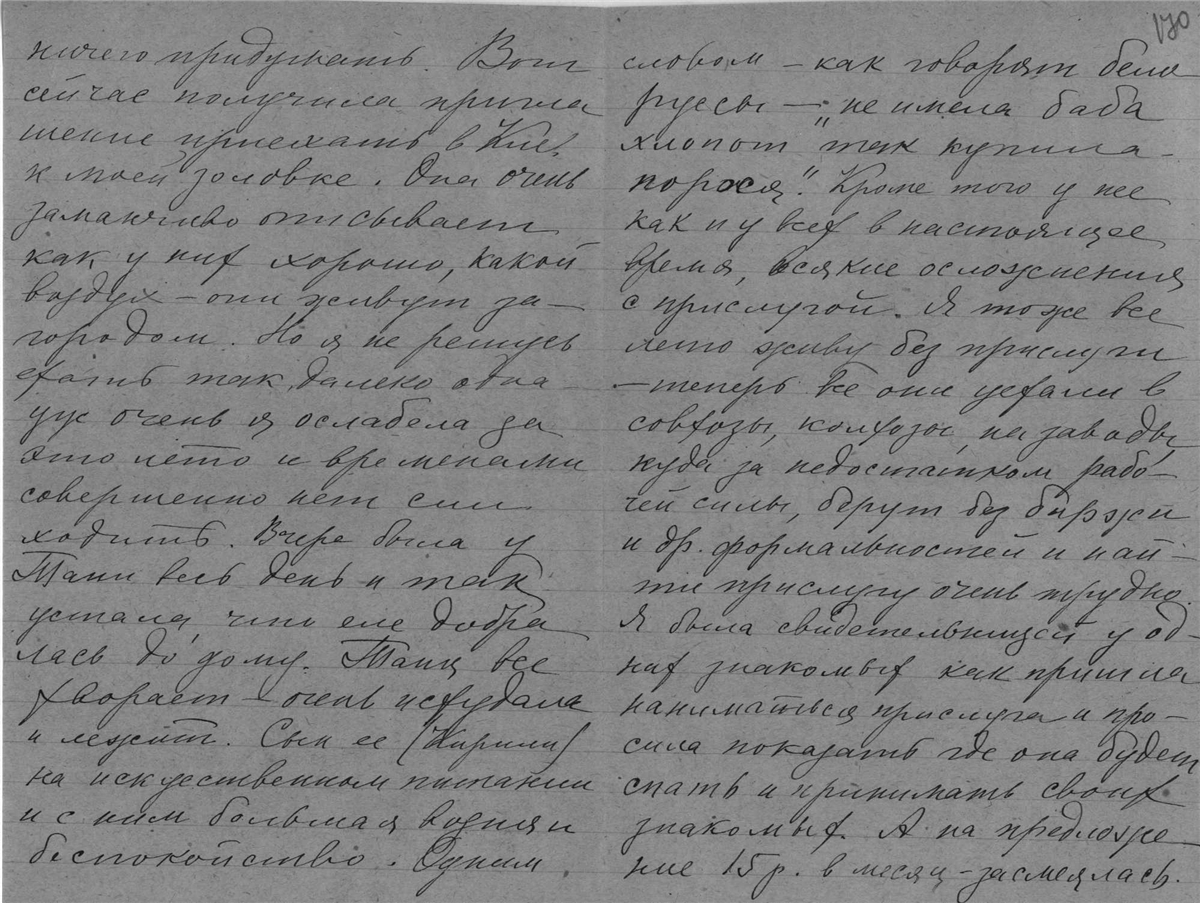 ничего придумать. Вот
сейчас получила пригла
шение приехать в Киев
к моей золовке. Она очень
заманчиво описывает
как у них хорошо, какой
воздух – они живут за–
городом. Но я не решусь
ехать так далеко одна –
уж очень я ослабела за
это лето и временами
совершенно нет сил
ходить. Вчера была у
Тани весь день и так
устала, что еле добра
лась до дому. Таня все
хворает – очень исхудала
и лежит. Сын ее (Кирилл)
на искуственном питании
и с ним большая возня и
беспокойство. Одним
170
словом – как говорят бело
руссы – „не имела баба
хлопот так купила –
порося". Кроме того у нее
как и у всех в настоящее
время, всякие осложнения
с прислугой. Я тоже все
лето живу без прислуги
– теперь все они уехали в
совхозы, колхозы, на заводы,
куда за недостатком рабо–
чей силы, берут без биржи
и др. формальностей и най–
ти прислугу очень трудно.
Я была свидетельницей у од–
них знакомых как пришла
наниматься прислуга и про–
сила показать где она будет
спать и принимать своих
знакомых. А на предложе
ние 15 р. в месяц – засмеялась.